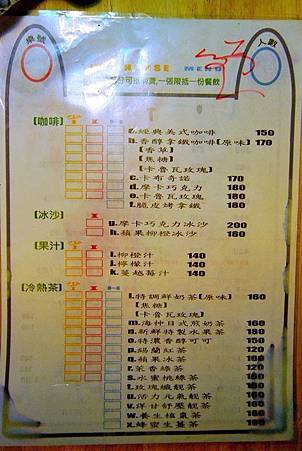 桌號
人數
MENU
一張限抵一份餐飲
[咖啡]
a.經典美式咖啡 150
b.香醇拿鐵咖啡[原味] 170
[香草]
[焦糖]
[卡魯瓦玫瑰]
c.卡布奇諾 170
d.摩卡巧克力 180
e.卡魯瓦玫瑰 180
f.脆皮烤拿鐵 180
[冰沙]
g.摩卡巧克力冰沙 200
h.蘋果柳橙冰沙 180
[果汁]
i.柳橙汁 140
j.檸檬汁 140
k.蔓越莓汁 140
[冷熱茶]
l.特調鮮奶茶[原味] 160
[焦糖]
[卡魯瓦玫瑰]
m.海神日式煎奶茶 160
n.新鮮特製水果茶 180
o.特濃香醇可可 150
p.錫蘭紅茶 120
q.蘋果冰茶 160
r.茉香綠茶 120
s.水蜜桃綠茶 150
t.玫瑰纖靓茶 160
u.活力元氣靓茶 160
v.洋甘舒壓靓茶 160
w.養生桂棗茶 160
x.蜂蜜生薑茶 160